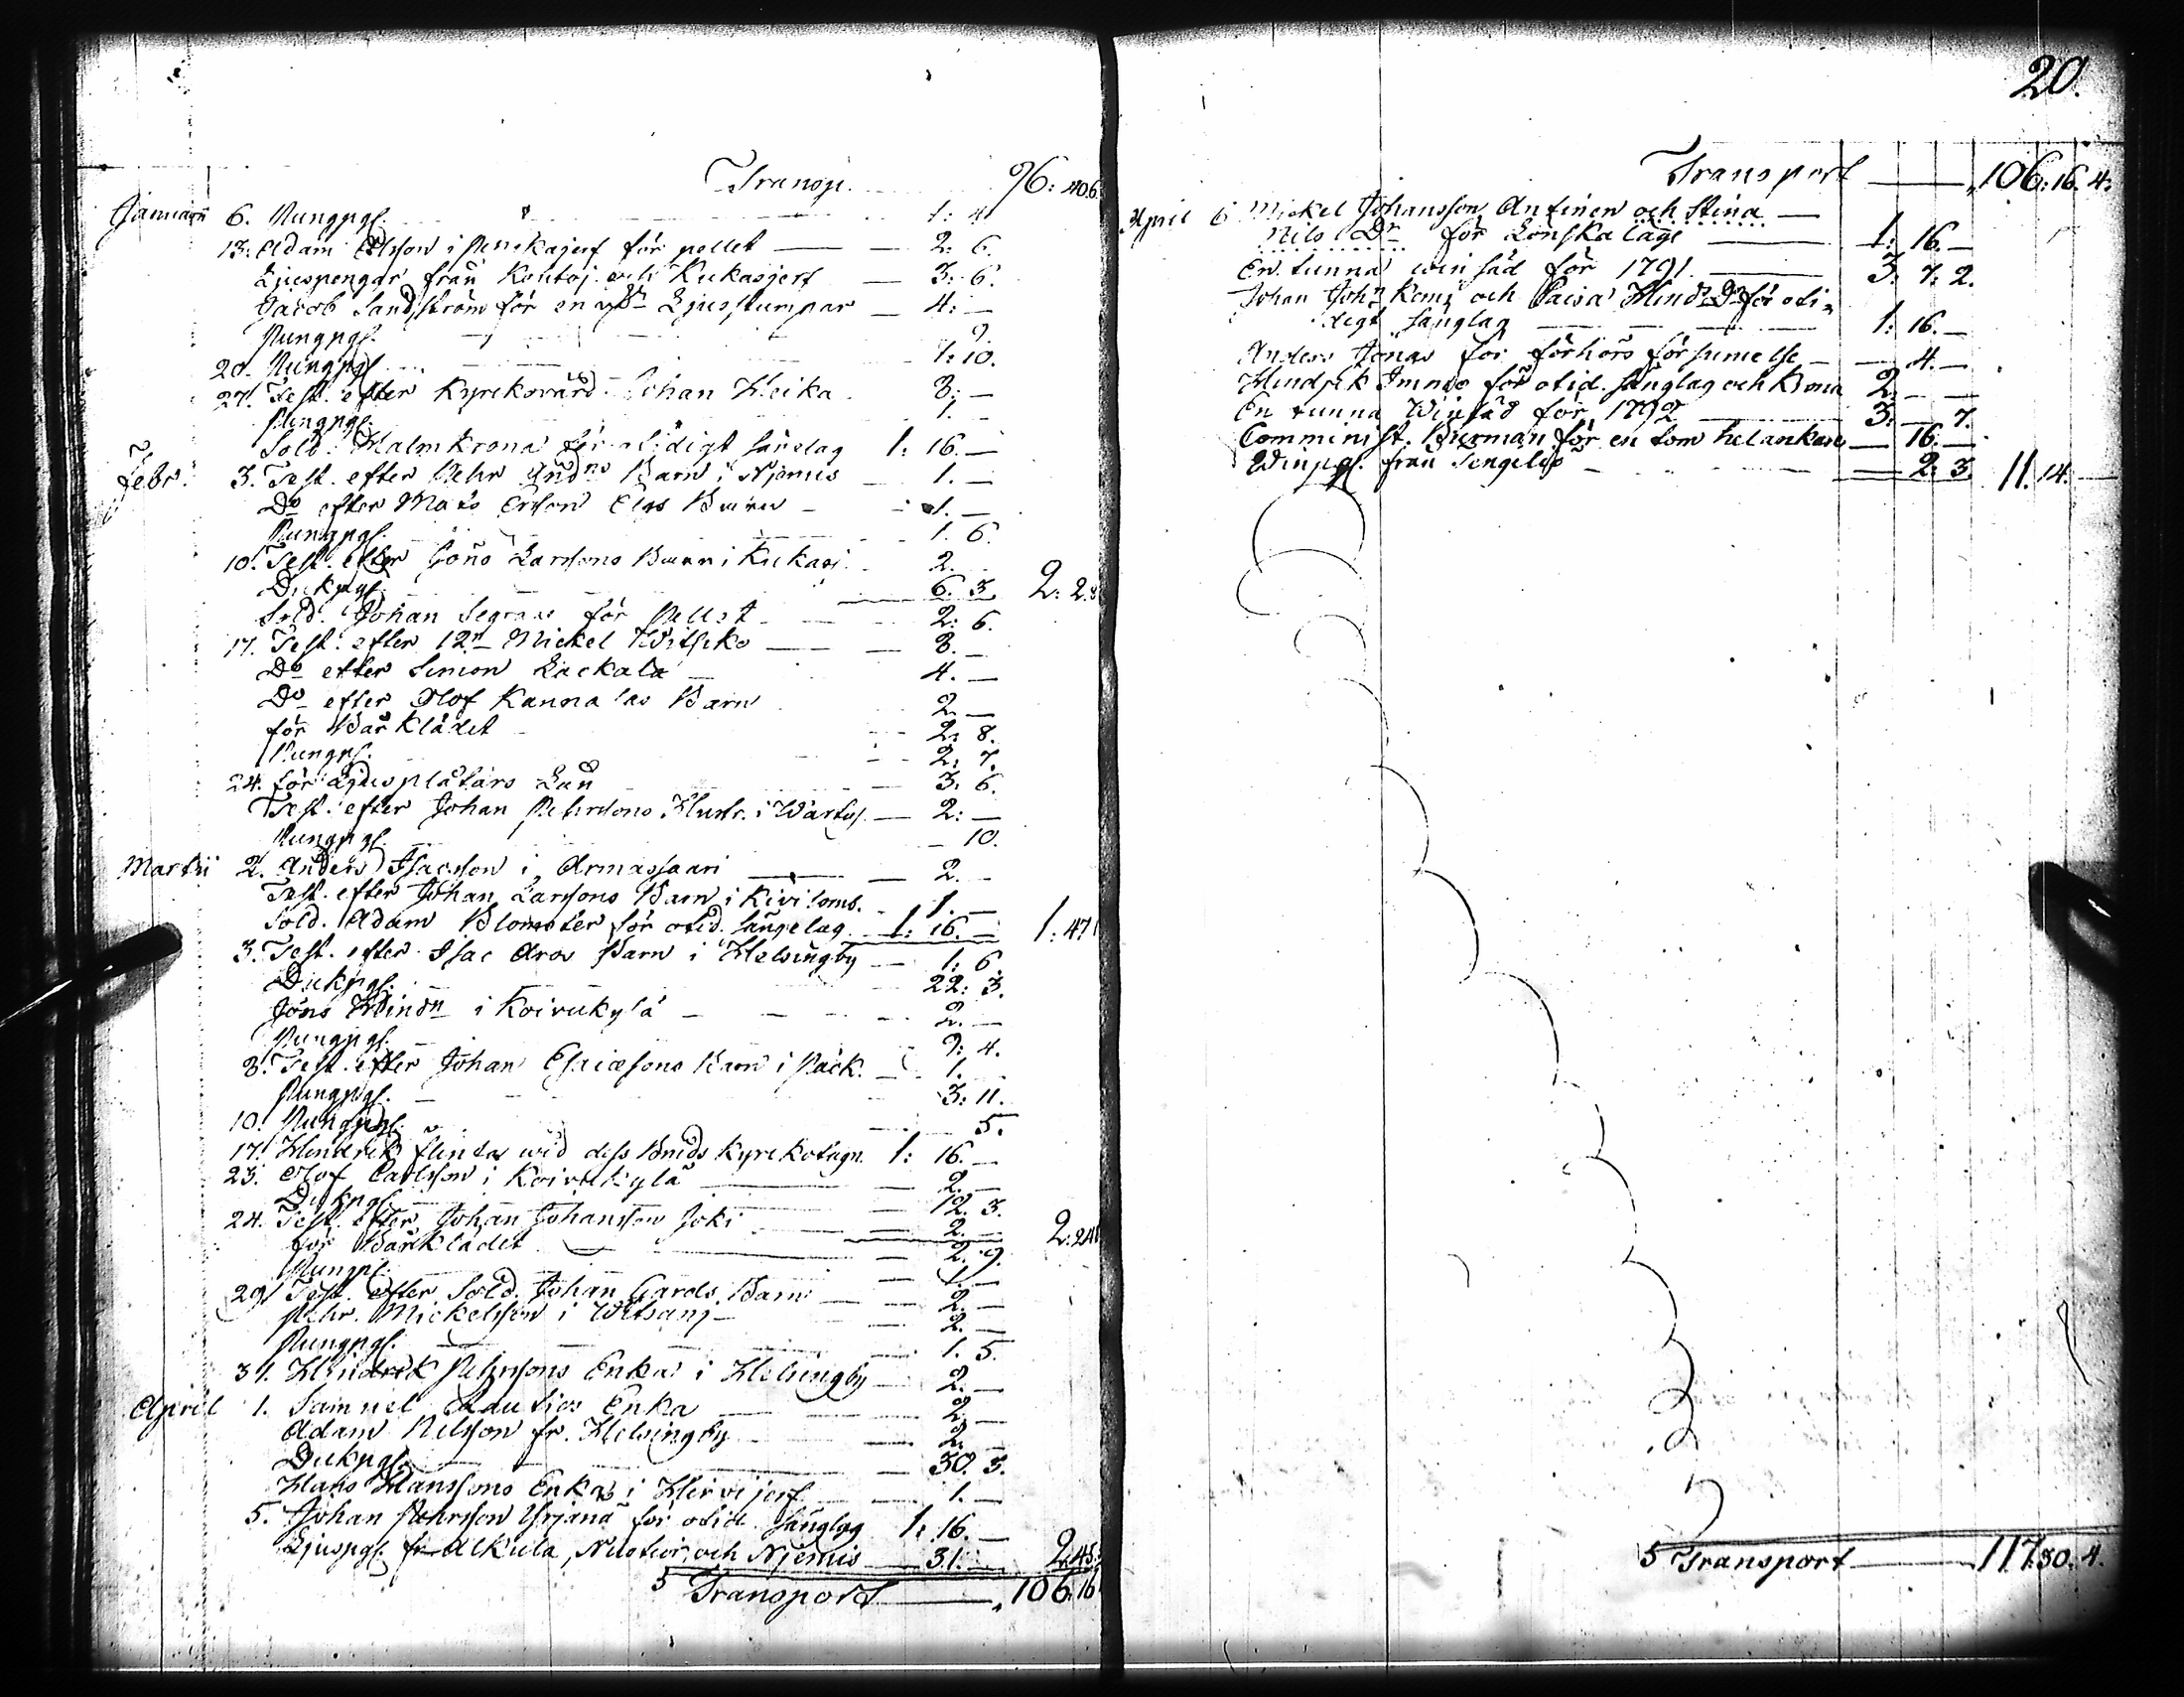 Transp. 96: 40.6
Januarii 6. Pungpgr. 1: 4
13. Adam Olsson i Penikajerf för pellet 2: 6.
Ljuspengar från Kontoj. och Kukasjerf 3: 6.
Jacob Sandström för en Ljusstumpar 4: —
Pungpgr. 9.
20. Pungpgr. 1: 10.
27. Test. efter Kyrkovärd. Johan Heika 8: —
Pungpgr. 1. —
Sold. Malmkrona för otidigt sänglag 1: 16. —
Febr. 3. Test. efter Pehr And:ns Barn i Njemis 1. —
Do efter Mats Ersson Elgs Barn 1. —
Pungpgr. 1. 6.
10. Test. efter Jöns Larssons Barn i Kukasj. 2.
Dukpgr. 6. 3. 2: 2.
Sold. Johan Segraus för Pellet 2: 6.
17. Test. efter 12n Mickel Witsiko 8. —
Do efter Simon Lackala 4. —
Do efter Olof Kannalas Barn 2. —
för Bårklädet 2: 8.
Pungpgr. 2: 7.
24. för Ljusplåtars Lån 3. 6.
Test. efter Johan Pehrssons Hustr. i Wartoj. 2: —
Pungpgr. 10.
Martii 2. Anders Isacsson i Armassaari 2. —
Test. efter Johan Larssons Barn i Kiviloms. 1. —
Sold. Adam Blomster för otid. sängelag 1: 16. — 1: 47
3. Test. efter Isac Aros Barn i Helsingby 1: 6.
Dukpgr. 22: 3.
Jöns Hindn i Koivukylä 2. —
Pungpgr. 9: 4.
8. Test. efter Johan Barn i Päck. 1.
Pungpgr. 3: 11.
10. Pungpgr. 5.
17. Hindrik flintas wid dess Bruds Kyrkotagn. 1: 16. —
23. Olof Carlsson i Koivukylä 2. —
Dukpgr. 12. 3.
24. Test. efter Johan Johansson Joki 2. — 2: 24
för Bårklädet 2. 9.
Pungpl. 1. —
29. Test. efter Sold. Johan Gards Barn 2. —
Pehr. Mickelsson i Witsanj 2. —
Pungpgr. 1. 5.
31. Hindrik Pehrssons Enka i Helsingby 2. —
April 1. Samuel Rautios Enka 2. —
Adam Nilsson fr. Helsingby 2. —
Dukpgr. 30. 3.
Hans Hanssons Enka i Hirvijerf 1. —
5. Johan Pehrsson Yrjänä för otid. sänglag 1: 16. —
Ljuspgr. fr Alkula, Nuotior och Njemis 31. — 2: 45.
5 Transport 106. 16
20.
Transport 106: 16. 4.
April 6 Mickel Johansson Antinen och Stina
Nils Dr för Lönskaläge 1: 16. —
En tunna win säd för 1791. 3. 7: 2.
Johan Johns Kemi och Caisa Hinds Dr för oti-
digt sänglag 1: 16. —
Anders Jonas för förhörs försummelse 4. —
Hindrik Immo för otid. sänglag och Brua 2. —
En tunna Winsäd för 1792 3. — 7.
Comminist. Burman för en tom helankare 16. —
Winpgr. från Tengeliö 2: 3. 11. 14.
5 Transport 117. 30. 4.